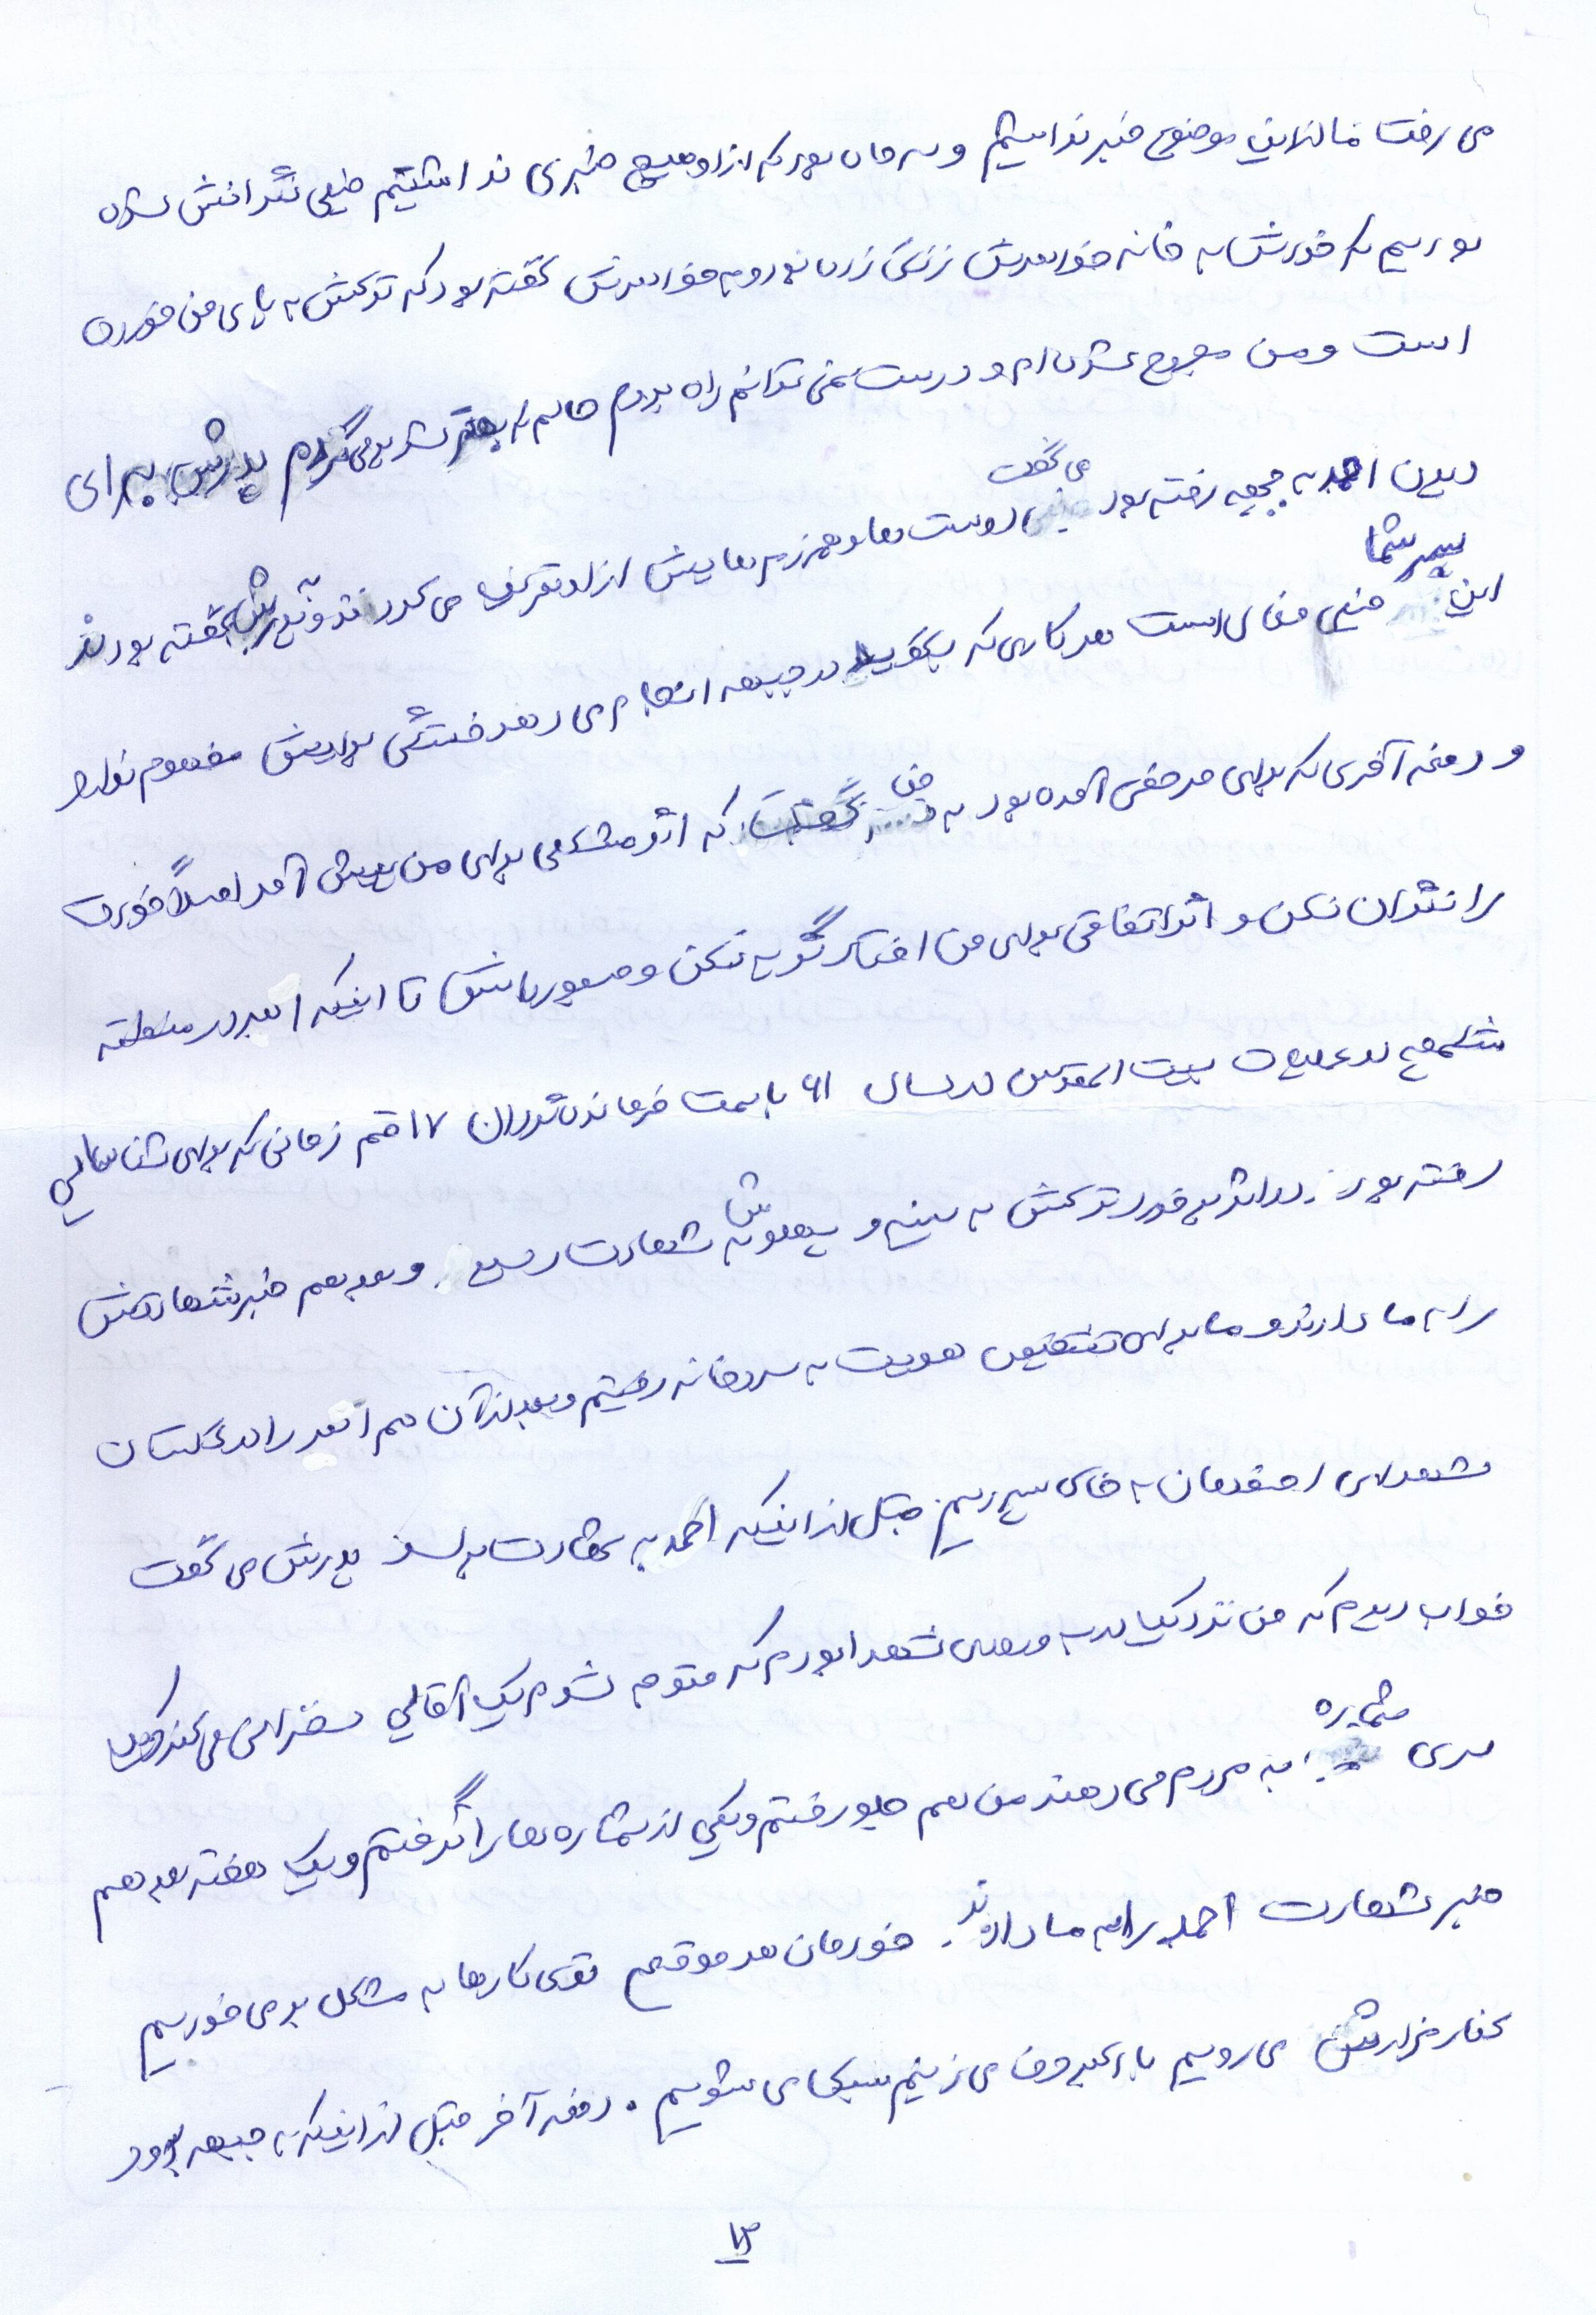 می رفت ما از این موضوع خبر نداشتیم و سه ماه بود که از او هیچ خبری نداشتیم خیلی نگرانش شده
بودیم که خودش به خانه خواهرش زنگ زده بود و به خواهرش گفته بود که ترکش به پای من خورده
است و من مجروح شده ام و درست نمی توانم راه بروم حالم که بهتر شد برمی گردم پدرش برای
دیدن احمد به جبهه رفته بود می گفت دوست ها و همرزم هایش از او تعریف می کردند و به پدرش گفته بودند
این پسر شما خیلی فعال است هر کاری که بگویید در جبهه انجام می دهد خستگی برایش مفهوم ندارد
و دفعه آخری که برای مرخصی آمده بود به من گفت که اگر مشکلی برای من پیش آمد اصلاً خودت
را نگران نکن و اگر اتفاقی برای من افتاد گریه نکن و صبور باش تا اینکه احمد در منطقه
شلمچه در عملیات بیت المقدس در سال ۶۱ با سمت فرمانده گردان ۱۷ قم زمانی که برای شناسایی
رفته بود بر اثر برخورد ترکش به سینه و پهلویش به شهادت رسید. و بعد هم خبر شهادتش
را به ما دادند و ما برای تشخیص هویت به سردخانه رفتیم و بعد از آن هم احمد را در گلستان
شهدای اصفهان به خاک سپردیم. قبل از اینکه احمد به شهادت برسد پدرش می گفت
خواب دیدم که من نزدیکیا درب ورودی شهدا بودم که متوجه شدم یک آقایی سخنرانی می کند و
سری شماره به مردم می دهند من هم جلو رفتم و یکی از شماره ها را گرفتم و یک هفته بعد هم
خبر شهادت احمد را به ما دادند. خودمان هر موقع توی کارها به مشکل بر می خوریم
کنار مزارش می رویم با احمد حرف می زنیم سبک می شویم. دفعه آخر قبل از اینکه به جبهه برود
۱۳